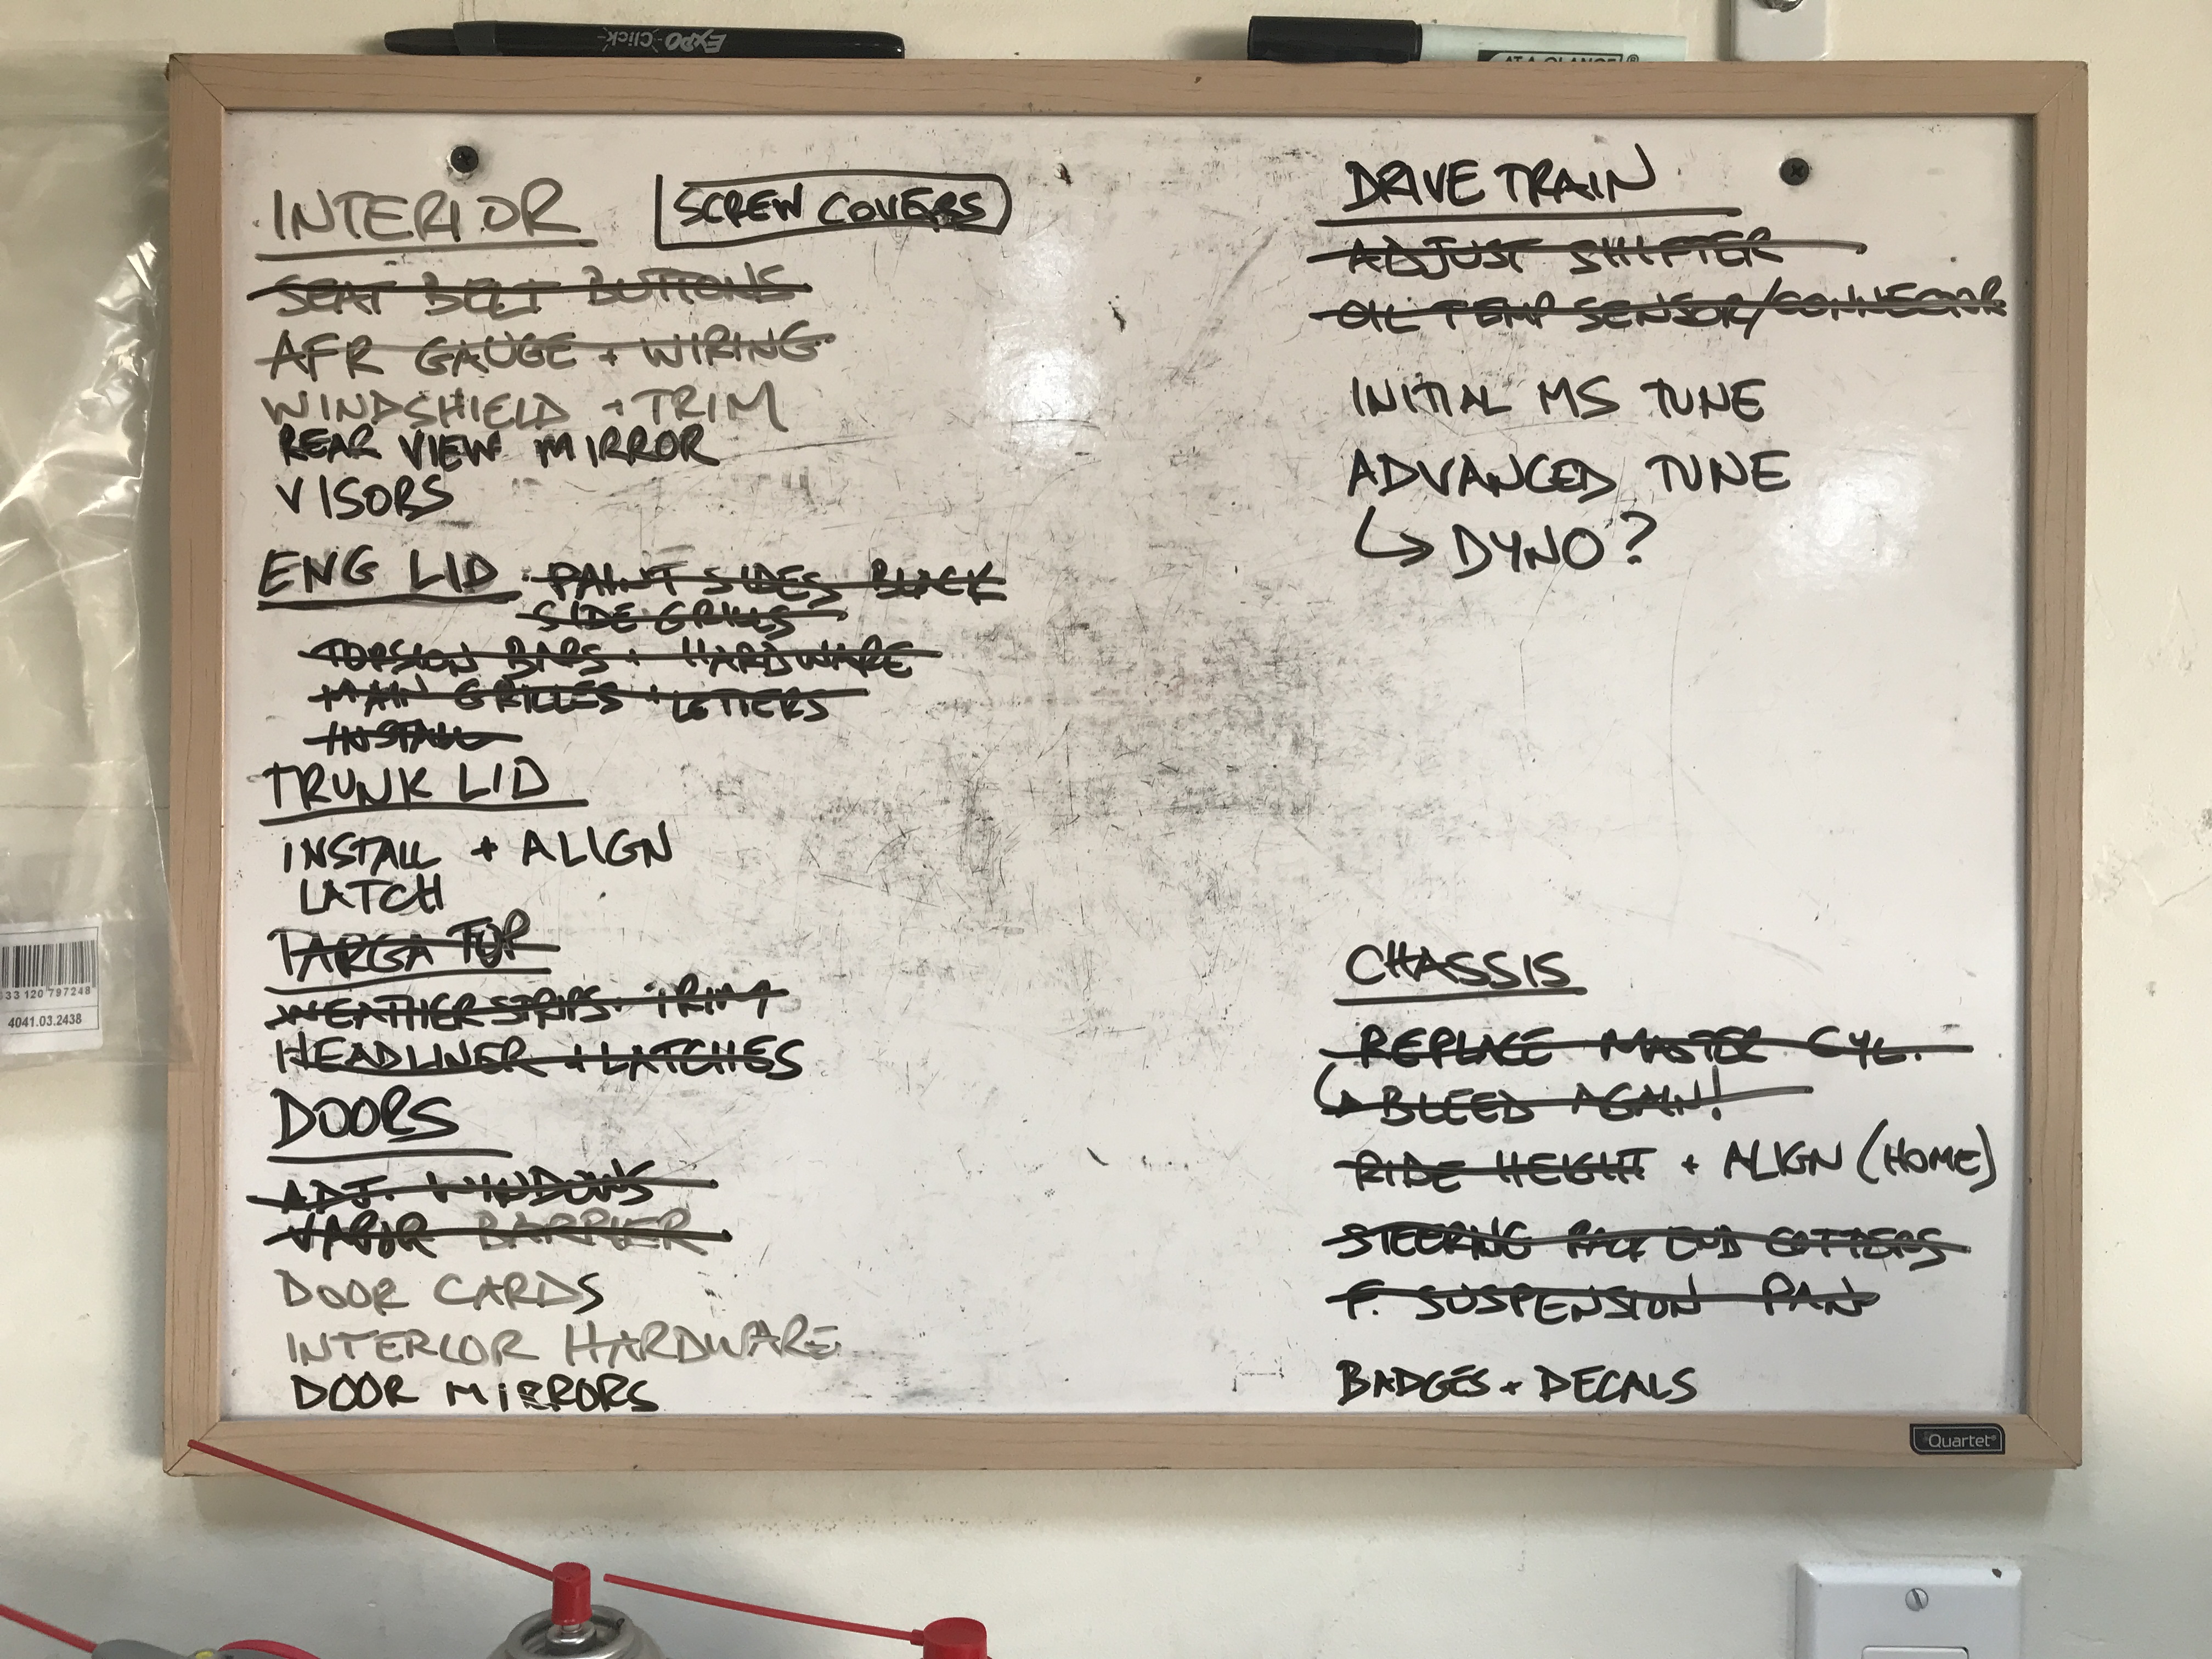 EXPO Click
AT-A-GLANCE®
INTERIOR
SCREW COVERS
SEAT BELT BUTTONS
AFR GAUGE + WIRING
WINDSHIELD + TRIM
REAR VIEW MIRROR
VISORS
ENG LID · PAINT SIDES BLACK
SIDE GRILLS
TORSION BARS + HARDWARE
MAIN GRILLES + LETTERS
INSTALL
TRUNK LID
INSTALL + ALIGN
LATCH
TARGA TOP
WEATHERSTRIPS + TRIM
HEADLINER + LATCHES
DOORS
ADJ. WINDOWS
VAPOR BARRIER
DOOR CARDS
INTERIOR HARDWARE
DOOR MIRRORS
DRIVETRAIN
ADJUST SHIFTER
OIL TEMP SENSOR/CONNECTOR
INITIAL MS TUNE
ADVANCED TUNE
↳ DYNO?
CHASSIS
REPLACE MASTER CYL.
↳ BLEED AGAIN!
RIDE HEIGHT + ALIGN (HOME)
STEERING RACK END COTTERS
F. SUSPENSION PAN
BADGES + DECALS
Quartet®
33 120 797248
4041.03.2438